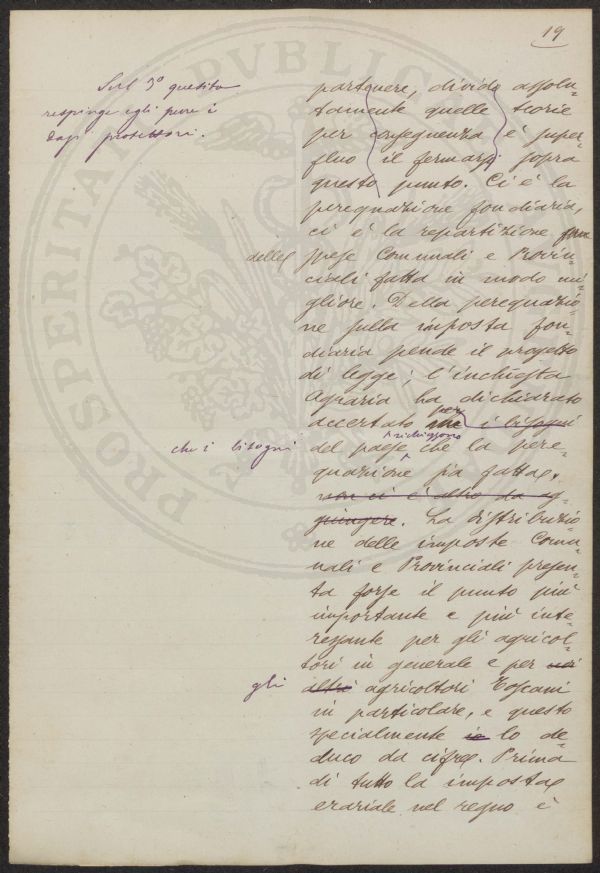 19
Sul 3º quesito
respinge egli pure i
dazi protettori.
partenere, divido assolu-
tamente quelle teorie
per conseguenza è super-
fluo il fermarsi sopra
questo punto. Ci è la
perequazione fondiaria,
ci è la repartizione
delle spese Comunali e Provin-
ciali fatta in modo mi-
gliore. Della perequazio-
ne sulla imposta fon-
diaria pende il progetto
di legge; l'inchiesta
Agraria ha dichiarato
accertato che per i bisogni
che i bisogni del paese richieggono che la pere-
quazione sia fatta,
non ci è altro da ag-
giungere. La distribuzio-
ne delle imposte Comu-
nali e Provinciali presen-
ta forse il punto più
importante e più inte-
ressante per gli agricol-
tori in generale e per noi
gli altri agricoltori Toscani
in particolare, e questo
specialmente io lo de-
duco da cifre. Prima
di tutto la imposta
erariale nel regno è
PROSPERITAS PUBLICA